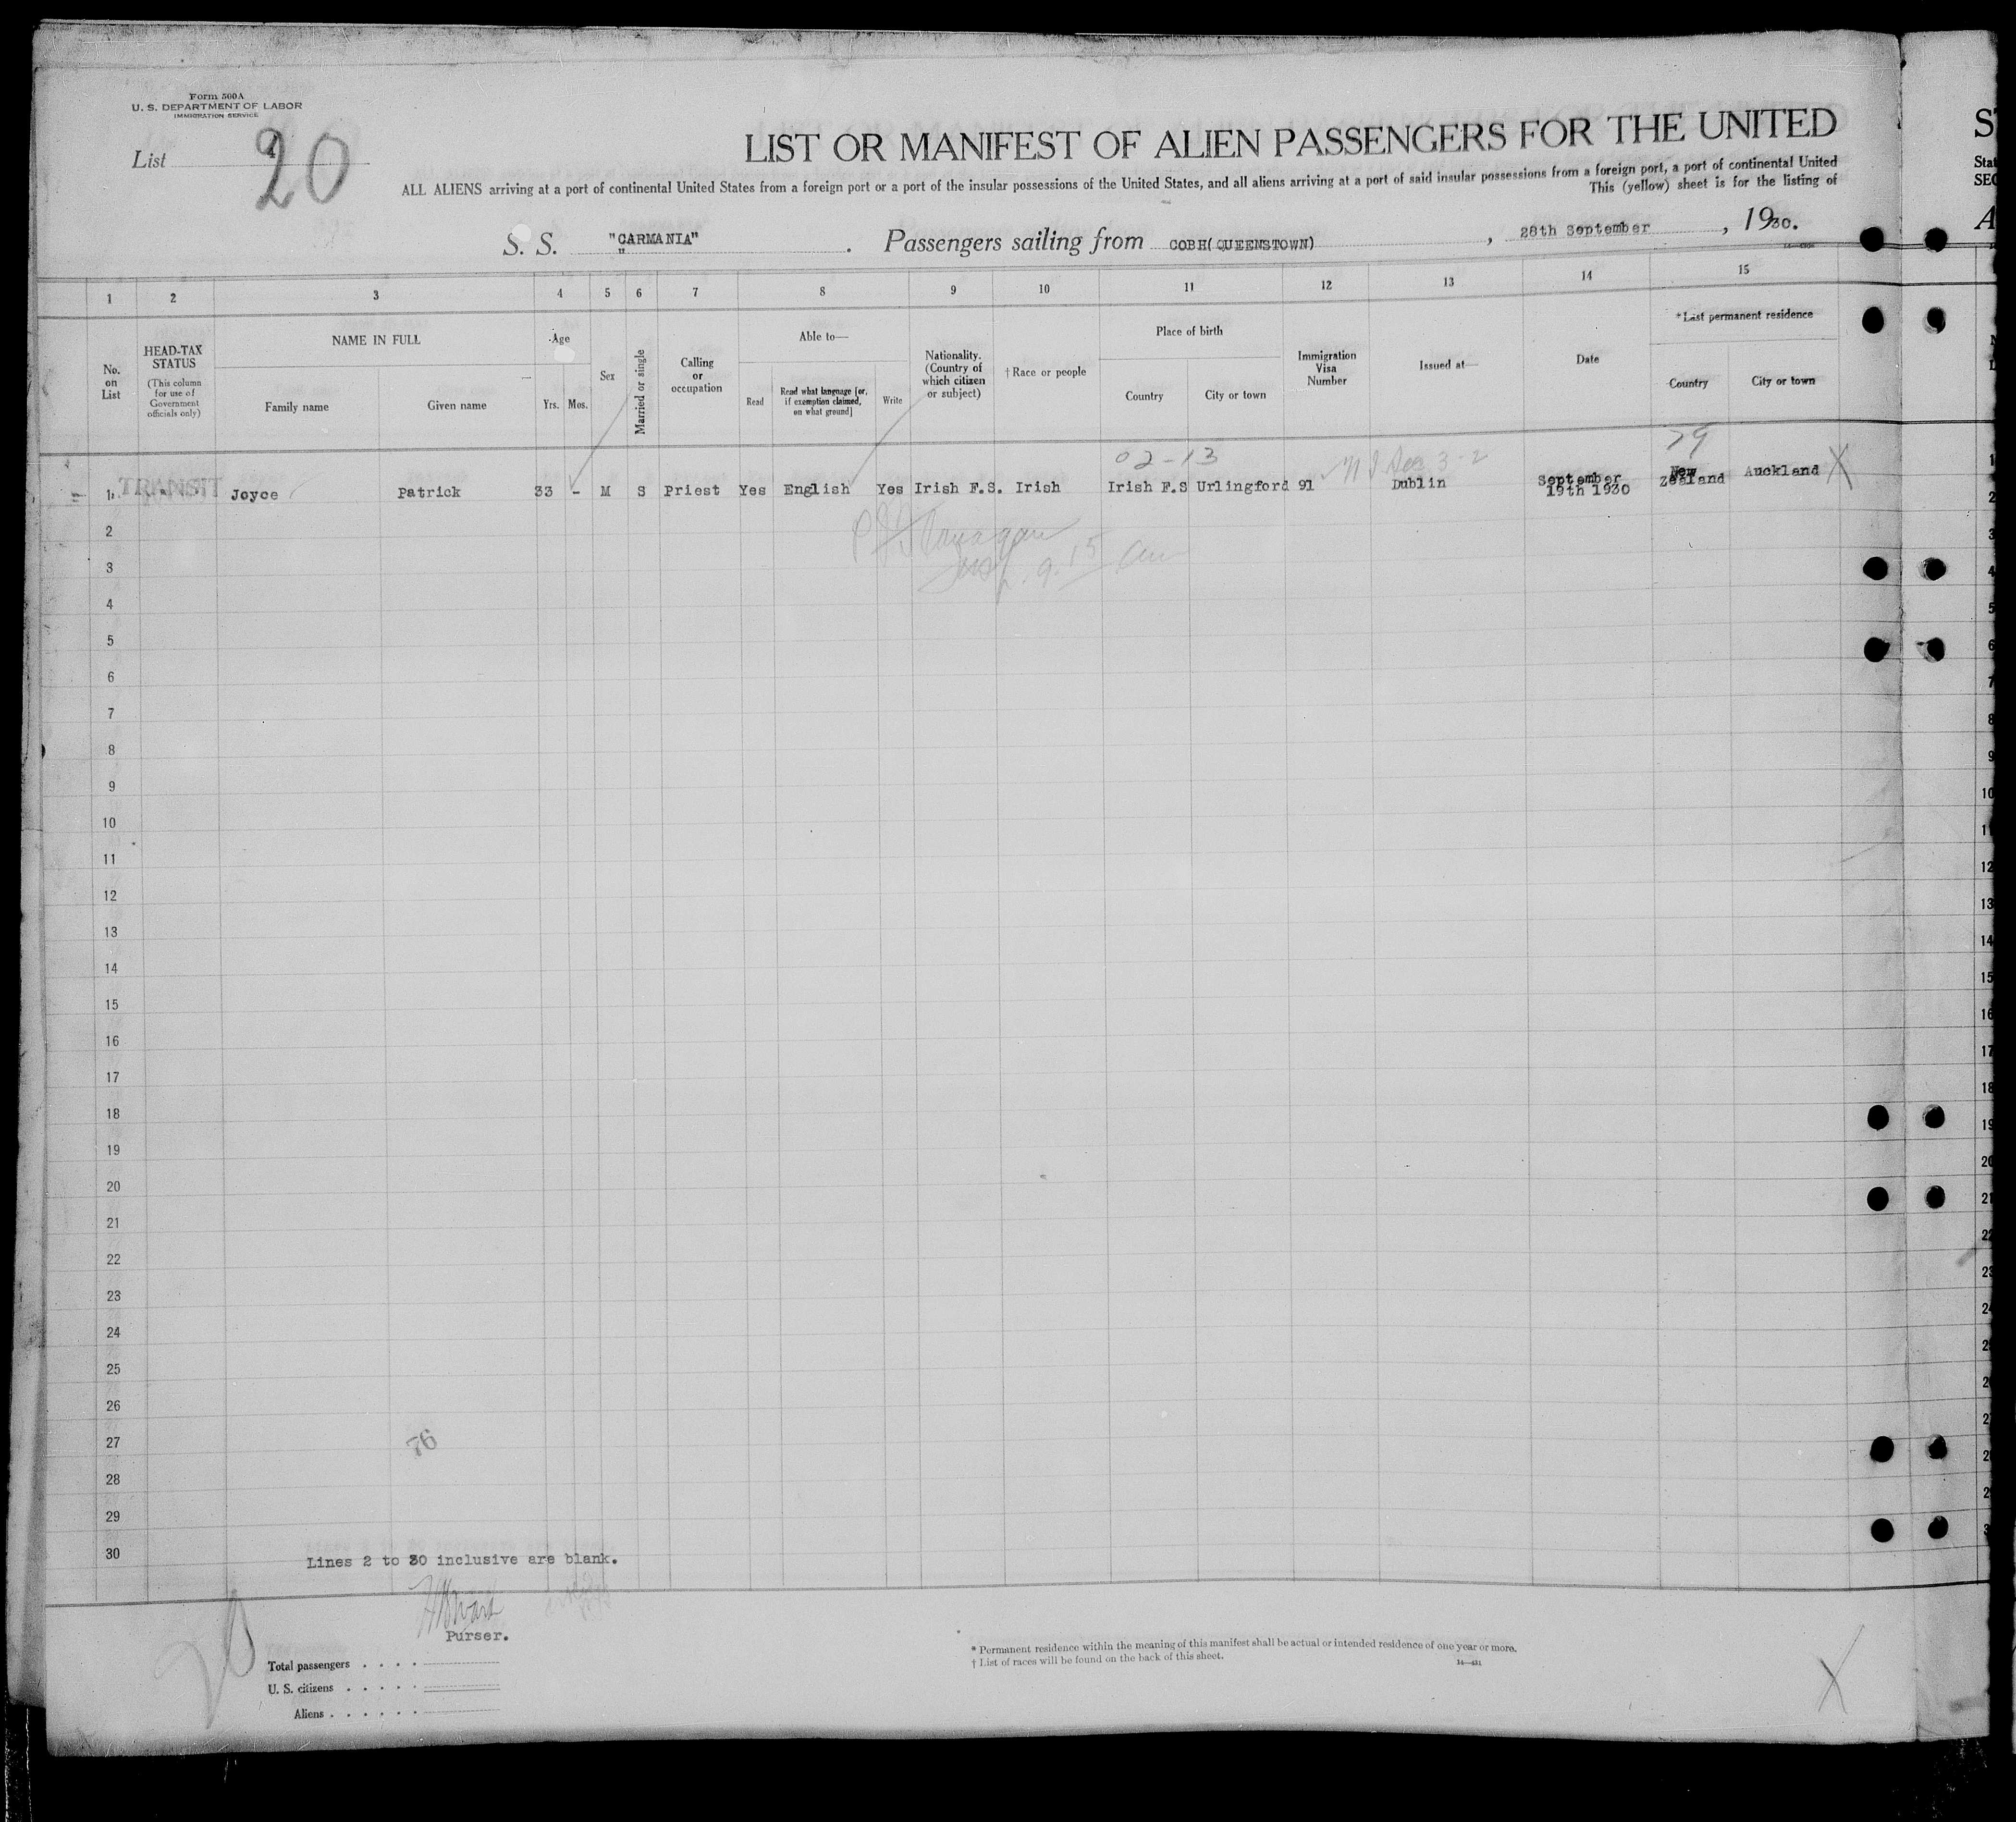 Form 500A
U. S. DEPARTMENT OF LABOR
IMMIGRATION SERVICE
List 20
LIST OR MANIFEST OF ALIEN PASSENGERS FOR THE UNITED
ALL ALIENS arriving at a port of continental United States from a foreign port or a port of the insular possessions of the United States, and all aliens arriving at a port of said insular possessions from a foreign port, a port of continental United
This (yellow) sheet is for the listing of
S. S. "CARMANIA" . Passengers sailing from COBH(QUEENSTOWN) , 28th September , 1930.
1 2 3 4 5 6 7 8 9 10 11 12 13 14 15
No. on List
HEAD-TAX STATUS
(This column for use of Government officials only)
NAME IN FULL
Family name
Given name
Age
Yrs. Mos.
Sex
Married or single
Calling or occupation
Able to—
Read
Read what language [or, if exemption claimed, on what ground]
Write
Nationality. (Country of which citizen or subject)
†Race or people
Place of birth
Country
City or town
Immigration Visa Number
Issued at—
Date
*Last permanent residence
Country
City or town
02-13
79
1 TRANSIT Joyce Patrick 33 - M S Priest Yes English Yes Irish F.S. Irish Irish F.S Urlingford 91 Dublin September 19th 1930 New Zealand Auckland X
2
9.15 am
3
4
5
6
7
8
9
10
11
12
13
14
15
16
17
18
19
20
21
22
23
24
25
26
27
76
28
29
30
Lines 2 to 30 inclusive are blank.
Purser.
20
Total passengers . . . .
U. S. citizens . . . . .
Aliens . . . . . .
* Permanent residence within the meaning of this manifest shall be actual or intended residence of one year or more.
† List of races will be found on the back of this sheet.
X